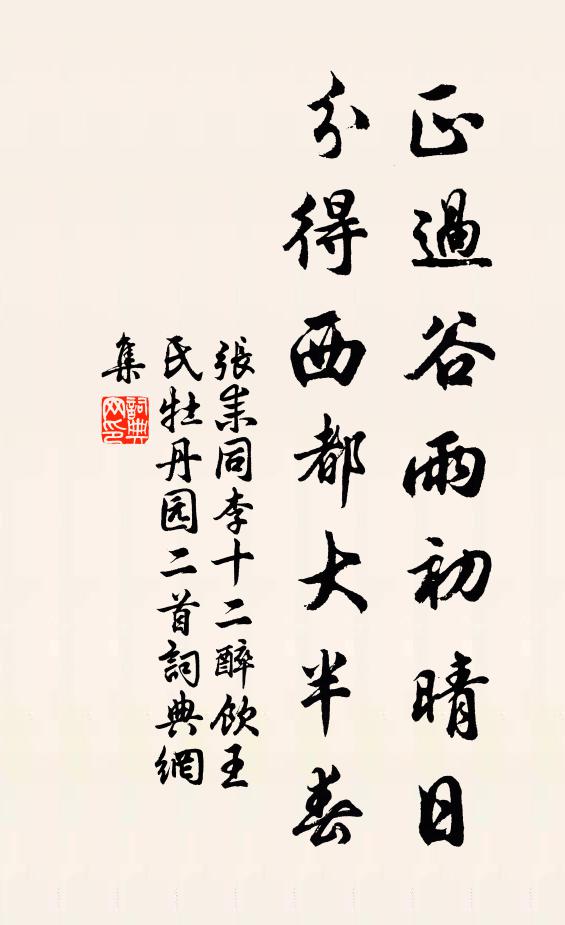 正過谷雨初晴日
分得西都大半春
張耒同李十二醉飲王
氏牡丹园二首詞典網
集
詞典
网印